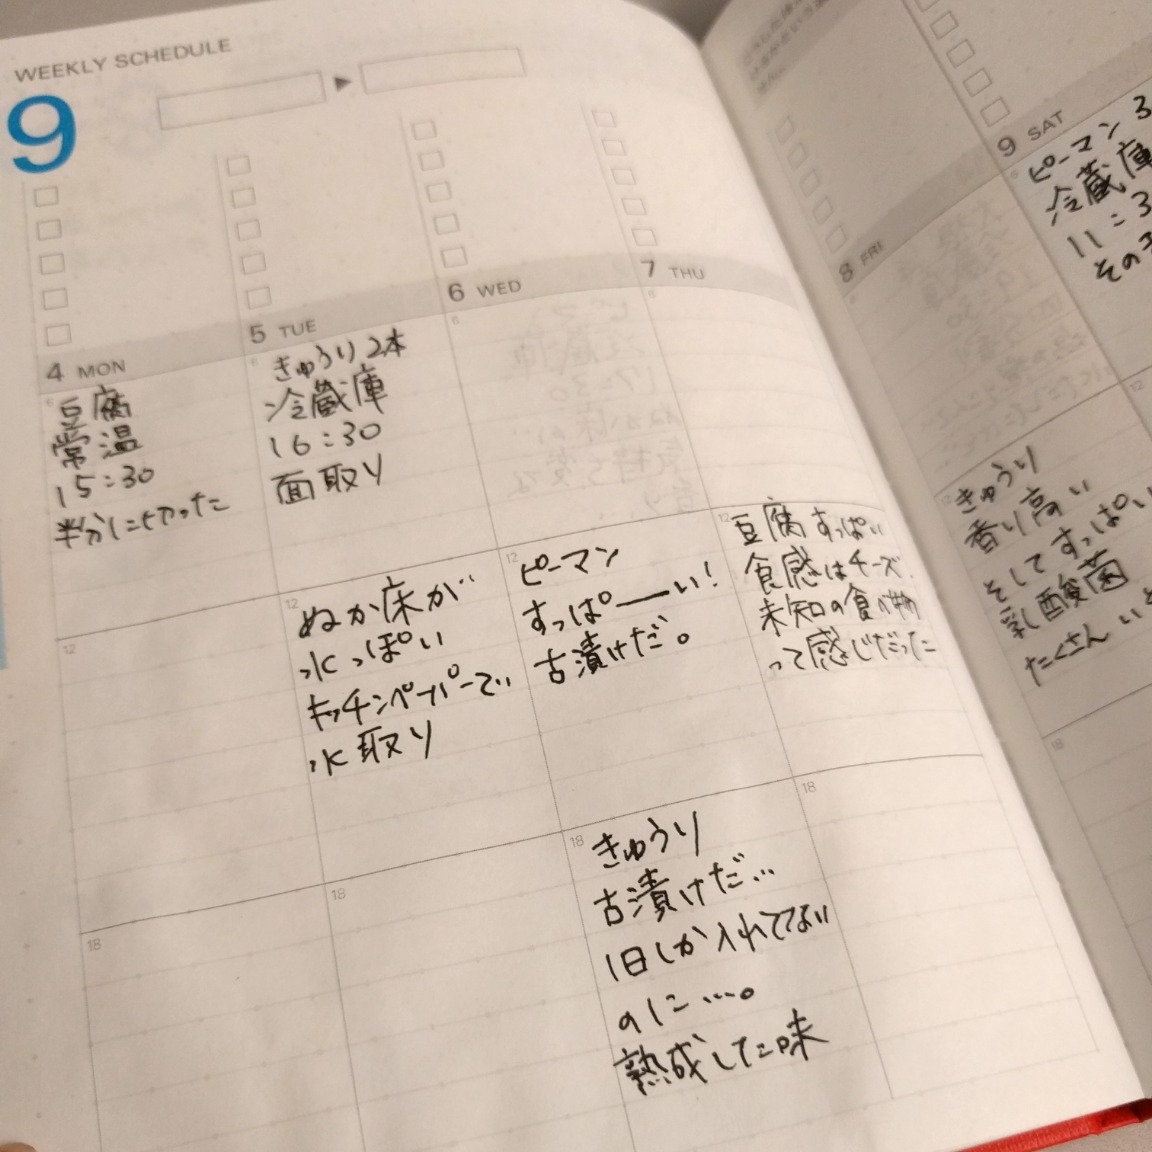 WEEKLY SCHEDULE
9
4 MON
豆腐
常温
15:30
半分に切った
12
18
5 TUE
きゅうり2本
冷蔵庫
16:30
面取り
12
ぬか床が
水っぽい
キッチンペーパーで
水取り
18
6 WED
6
12
ピーマン
すっぱーい!
古漬けだ。
18
きゅうり
古漬けだ…
1日しか入れてない
のに…。
熟成した味
7 THU
6
12
豆腐すっぱい
食感はチーズ
未知の食べ物
って感じだった
18
8 FRI
きゅうり
香り高い
そしてすっぱい
乳酸菌
たくさん
18
9 SAT
ピーマン 3
冷蔵庫
11:3
12